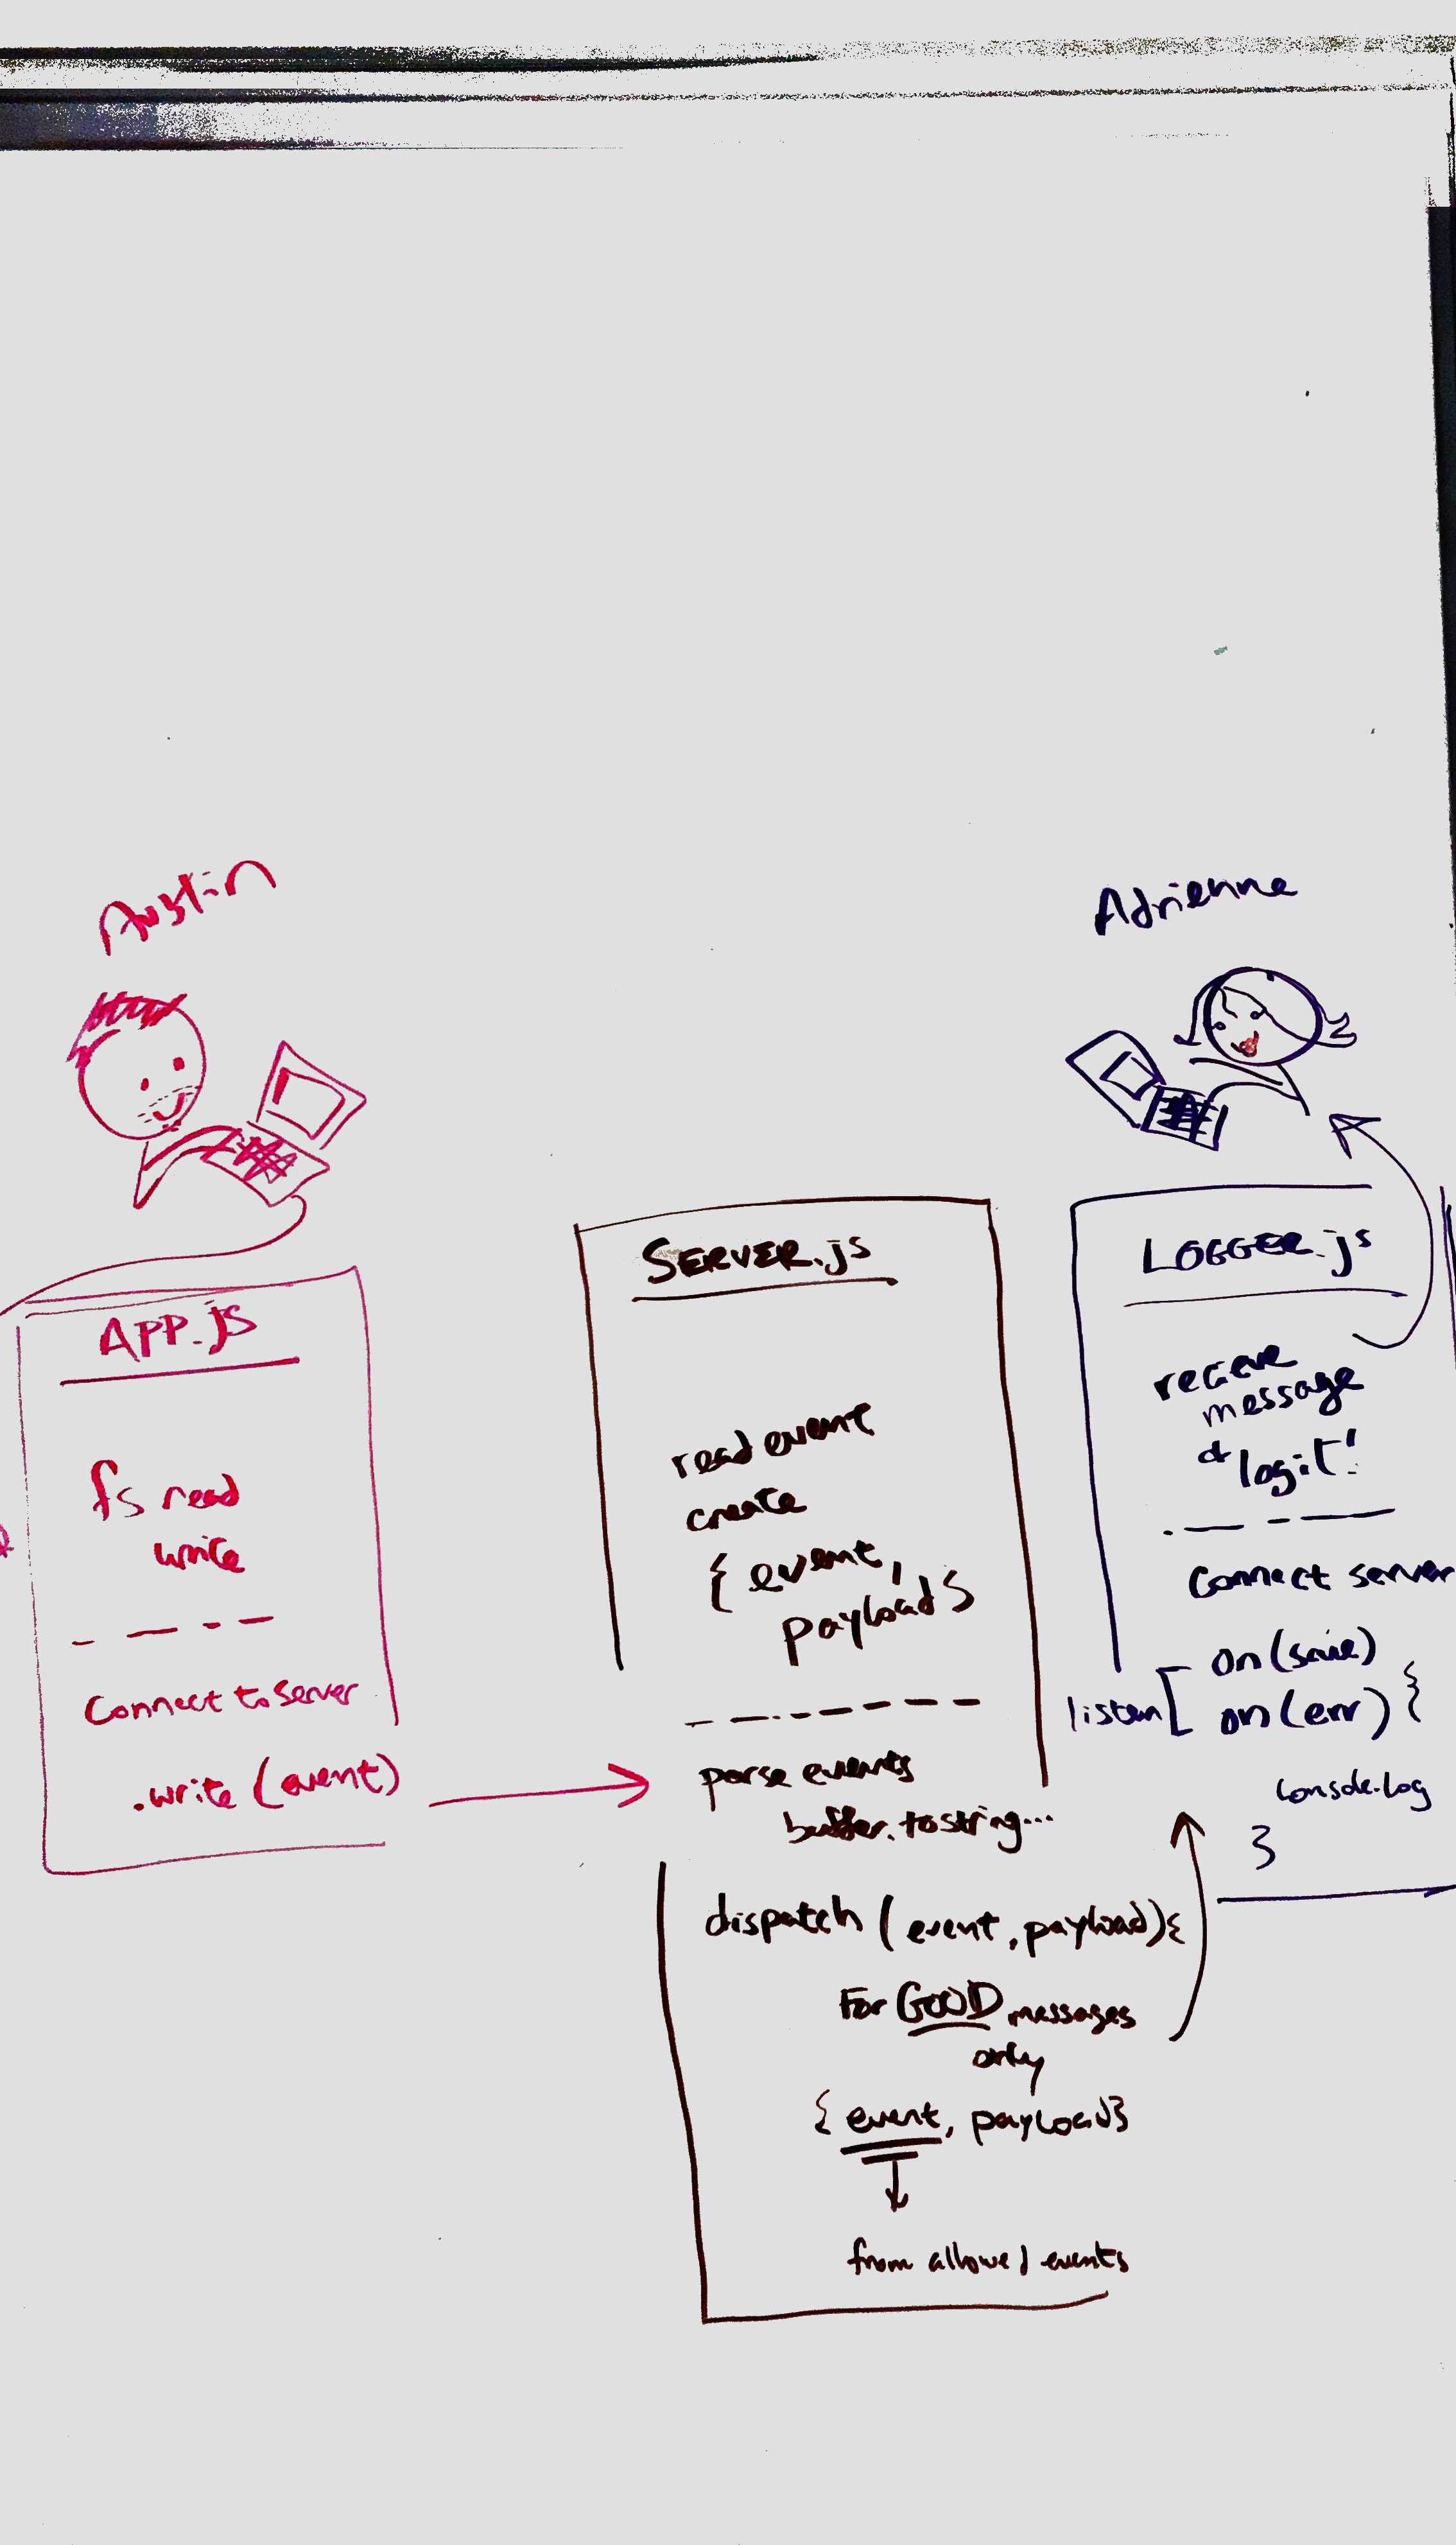 Austin
APP.js
fs read
write
Connect to server
.write (event)
SERVER.js
read event
create
{ event,
payload }
parse events
buffer.tostring...
dispatch (event, payload) {
For GOOD messages
only
{ event, payload }
from allowed events
Adrienne
LOGGER.js
recieve
message
& log it!
Connect server
listen [ on (save)
on (err) {
console.log
}